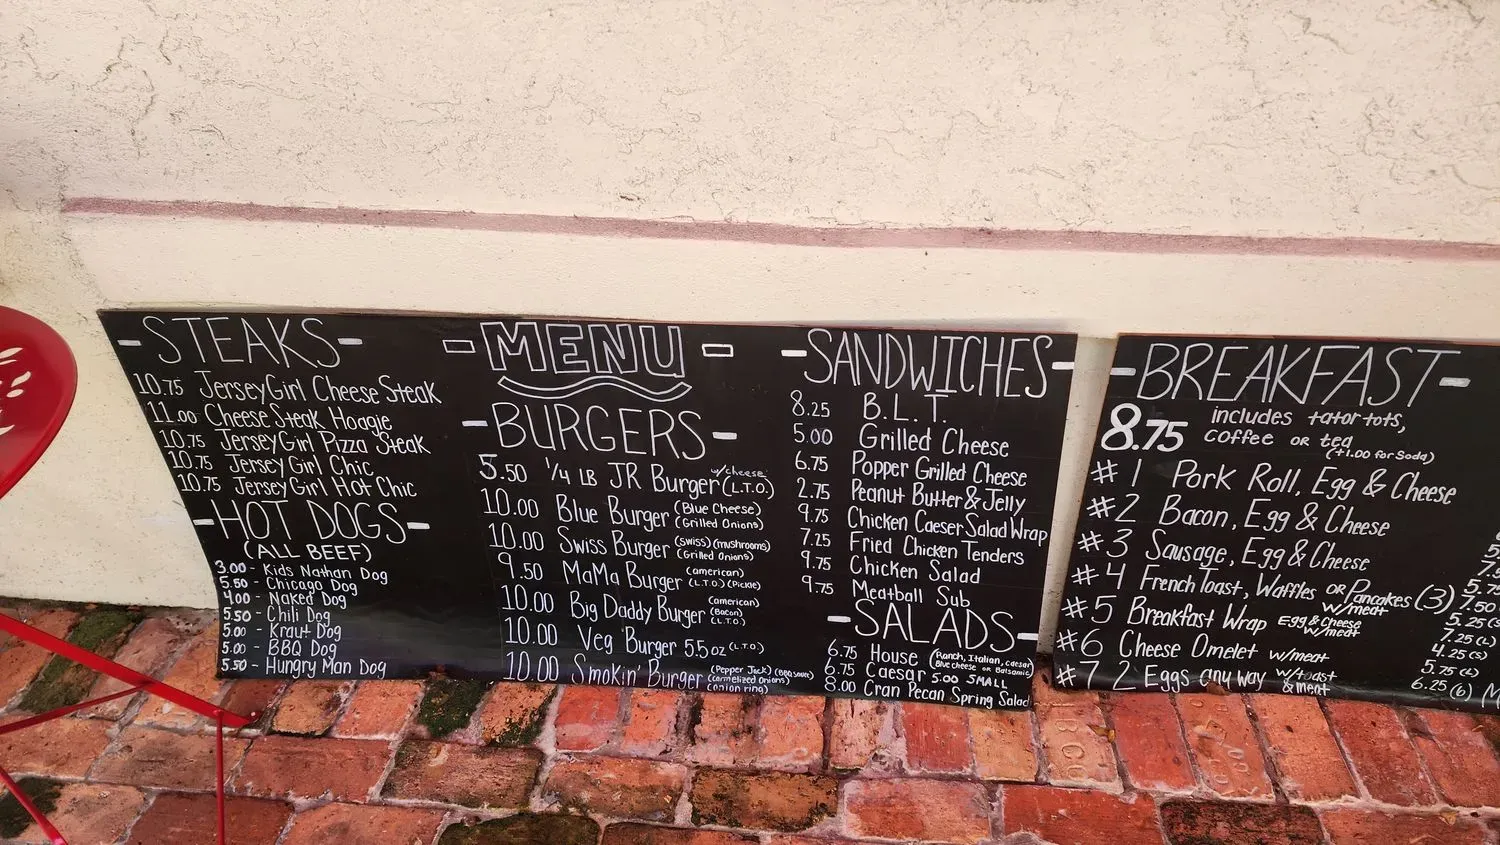 -STEAKS-
10.75 JerseyGirl Cheese Steak
11.00 Cheese Steak Hoagie
10.75 JerseyGirl Pizza Steak
10.75 JerseyGirl Chic
10.75 JerseyGirl Hot Chic
-HOT DOGS-
(ALL BEEF)
3.00 - Kids Nathan Dog
5.50 - Chicago Dog
4.00 - Naked Dog
5.50 - Chili Dog
5.00 - Kraut Dog
5.00 - BBQ Dog
5.50 - Hungry Man Dog
MENU
-BURGERS-
5.50 1/4 LB JR Burger w/cheese (L.T.O.)
10.00 Blue Burger (Blue Cheese) (Grilled Onions)
10.00 Swiss Burger (Swiss) (mushrooms) (Grilled Onions)
9.50 MaMa Burger (american) (L.T.O.) (Pickle)
10.00 Big Daddy Burger (american) (Bacon) (L.T.O.)
10.00 Veg Burger 5.5oz (L.T.O.)
10.00 Smokin' Burger (Pepper Jack) (BBQ sauce) (carmelized Onions) (onion ring)
-SANDWICHES-
8.25 B.L.T.
5.00 Grilled Cheese
6.75 Popper Grilled Cheese
2.75 Peanut Butter & Jelly
9.75 Chicken Caeser Salad Wrap
7.25 Fried Chicken Tenders
9.75 Chicken Salad
9.75 Meatball Sub
-SALADS-
6.75 House (Ranch, Italian, caesar Blue cheese or Balsamic)
6.75 Caesar 5.00 SMALL
8.00 Cran Pecan Spring Salad
-BREAKFAST-
8.75 includes tator tots,
coffee or tea
(+1.00 for Soda)
#1 Pork Roll, Egg & Cheese
#2 Bacon, Egg & Cheese
#3 Sausage, Egg & Cheese
#4 French Toast, Waffles or Pancakes (3) w/meat
#5 Breakfast Wrap Egg & Cheese w/meat
#6 Cheese Omelet w/meat
#7 2 Eggs any way w/toast & meat
5.75
7.50
5.25 (s)
7.25 (L)
4.25 (s)
5.75 (L)
6.25 (6)